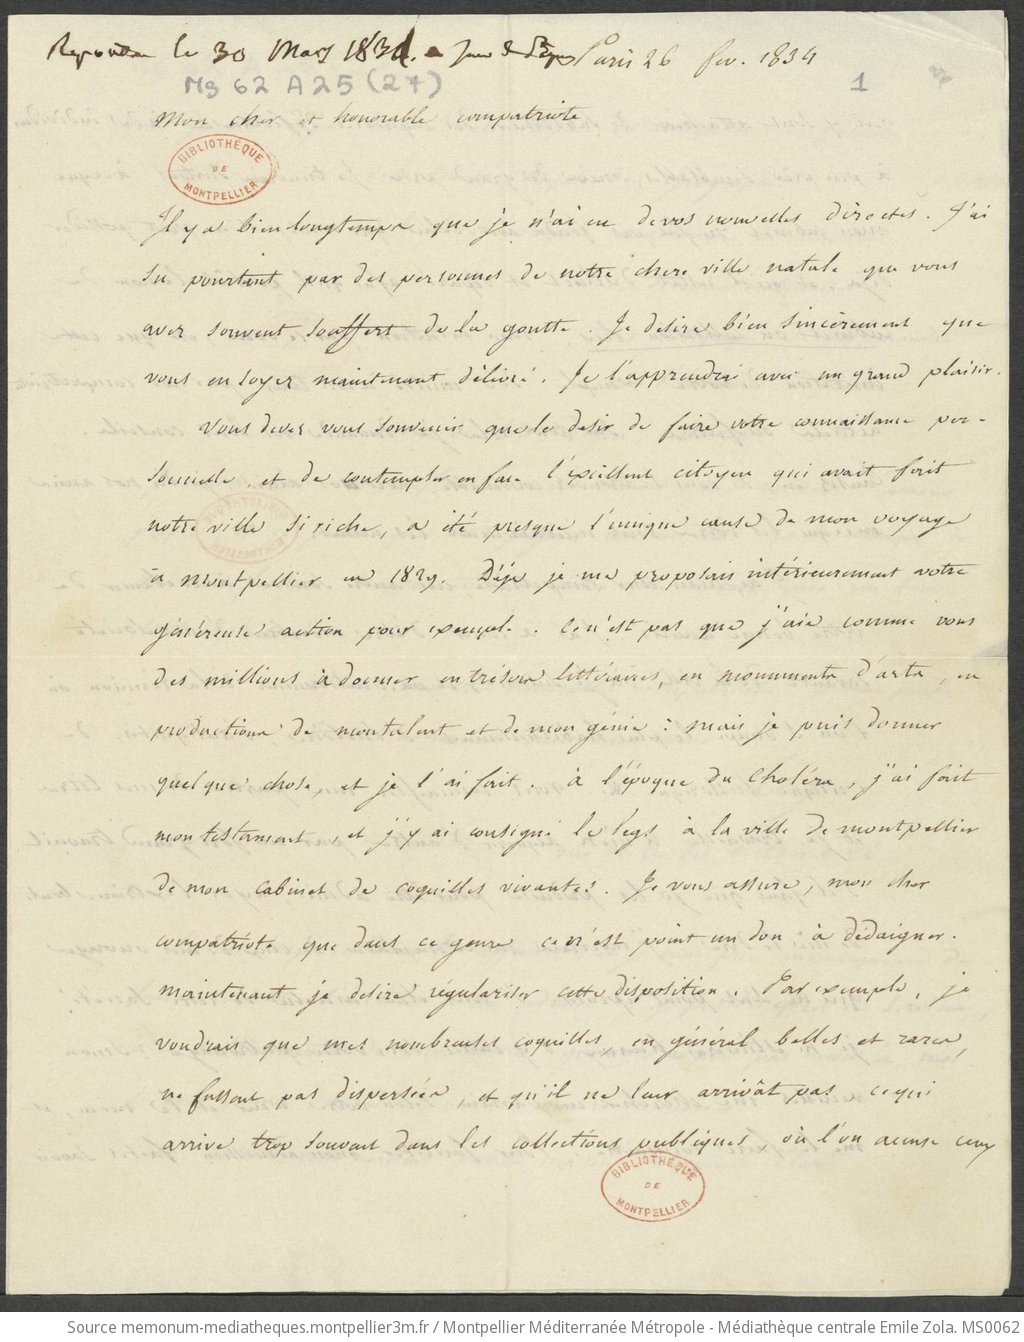 le 30 Mars 1834. Paris 26 fev. 1834
Ms 62 A 25 (27) 1
Mon cher et honorable compatriote
BIBLIOTHÈQUE
DE
MONTPELLIER
Il y a bien longtemps que je n'ai eu de vos nouvelles directes. J'ai
su pourtant par des personnes de notre chere ville natale que vous
avez souvent souffert de la goutte. Je desire bien sincèrement que
vous en soyez maintenant délivré. Je l'apprendrai avec un grand plaisir.
Vous devez vous souvenir que le desir de faire votre connaissance per-
sonnelle, et de contempler en face l'excellent citoyen qui avait fait
notre ville si riche, a été presque l'unique cause de mon voyage
à Montpellier en 1829. Déja je me proposais intérieurement votre
généreuse action pour exemple. Ce n'est pas que j'aie comme vous
des millions à donner en trésors littéraires, en monuments d'arts, en
productions de mon talent et de mon génie : mais je puis donner
quelque chose, et je l'ai fait. à l'époque du Choléra, j'ai fait
mon testament, et j'y ai consigné le legs à la ville de Montpellier
de mon cabinet de coquilles vivantes. Je vous assure, mon cher
compatriote que dans ce genre ce n'est point un don à dédaigner.
Maintenant je desire régulariser cette disposition. Par exemple, je
voudrais que mes nombreuses coquilles, en général belles et rares,
ne fussent pas dispersées, et qu'il ne leur arrivât pas, ce qui
arrive trop souvent dans les collections publiques, où l'on accuse ceux
BIBLIOTHÈQUE
DE
MONTPELLIER
Source memonum-mediatheques.montpellier3m.fr / Montpellier Méditerranée Métropole - Médiathèque centrale Emile Zola. MS0062